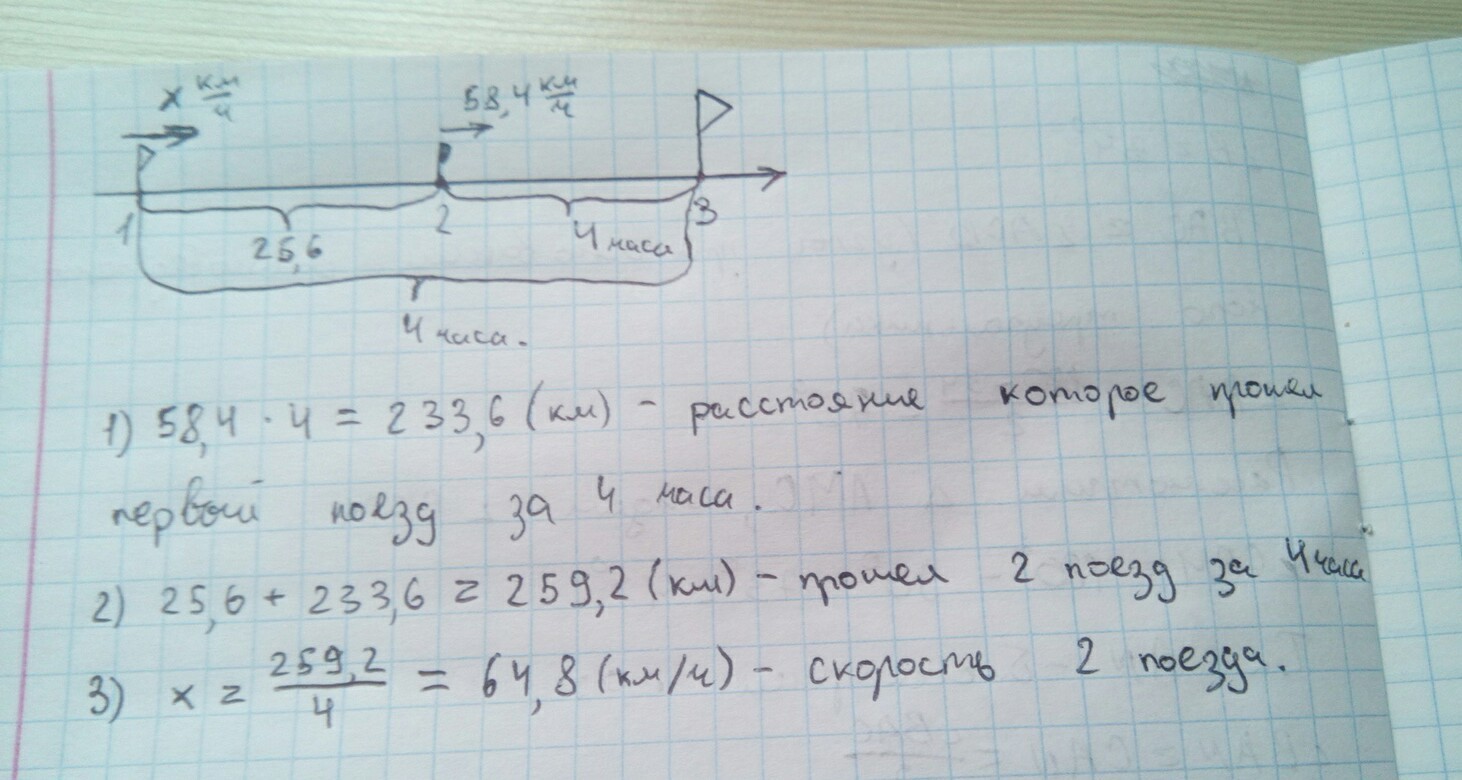 x км/ч 58,4 км/ч
1 2 3
25,6 4 часа
4 часа.
1) 58,4 · 4 = 233,6 (км) - расстояние которое прошел
первый поезд за 4 часа.
2) 25,6 + 233,6 = 259,2 (км) - прошел 2 поезд за 4 часа
3) x = 259,2/4 = 64,8 (км/ч) - скорость 2 поезда.